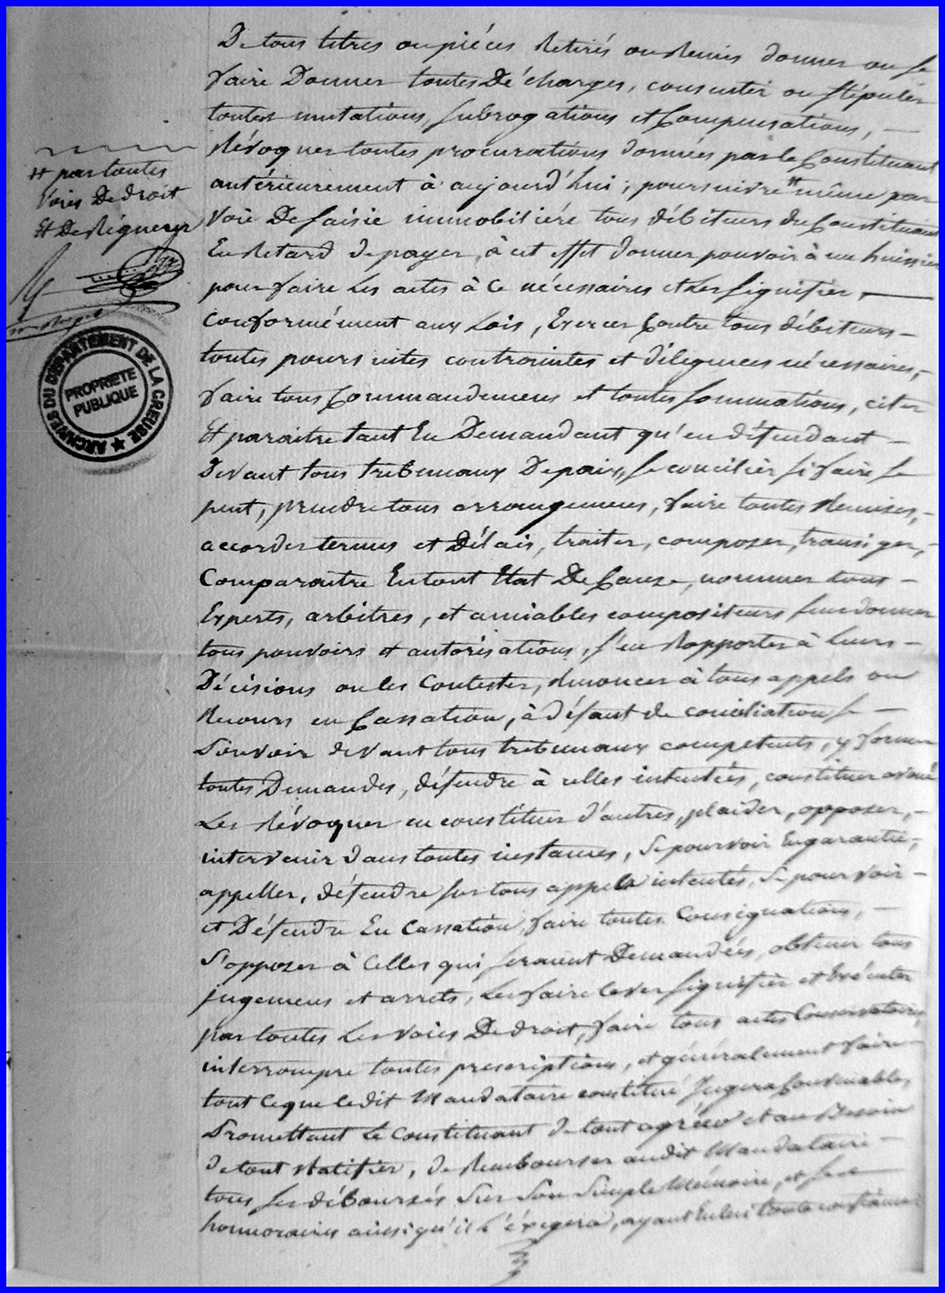 De tous titres ou pièces Retirés ou Remis donner ou se
faire Donner toutes Décharges, consentir ou stipuler
toutes mutations, subrogations et Compensations, —
Révoquer toutes procurations données par le Constituant
antérieurement à aujourd'hui; poursuivre # même par
# par toutes
voies De droit
et De Réquerir
voie De saisie immobilière tous débiteurs du Constituant
En Retard de payer, à cet effet donner pouvoir à un huissier
pour faire les actes à ce nécessaires et les signifier, —
conformément aux Lois, Exercer Contre tous débiteurs —
toutes poursuites contraintes et diligences nécessaires, —
faire tous Commandemens et toutes sommations, citer
Et paraitre tant En Demandant qu'en défendant —
Devant tous tribunaux De paix, se concilier si faire se
peut, prendre tous arrangemens, faire toutes Remises, —
accorder termes et Délais, traiter, composer, transiger, —
Comparaitre En tout Etat De Cause, nommer tous —
Experts, arbitres, et amiables compositeurs leur donner
tous pouvoirs et autorisations, s'en Rapporter à leurs —
Décisions ou les Contester, Renoncer à tous appels ou
Recours en Cassation, à défaut de conciliation se —
Pourvoir devant tous tribunaux compétents, y former
toutes Demandes, défendre à celles intentées, constituer avoué
Les Révoquer en constituer d'autres, plaider, opposer, —
intervenir dans toutes instances, se pourvoir En garantie,
appeller, défendre sur tous appels intentés, se pourvoir —
et Défendre En Cassation, faire toutes Consignations, —
S'opposer à Celles qui seraient Demandées, obtenir tous
jugemens et arrets, Les faire lever signifier et Exécuter
par toutes Les voies De droit, faire tous actes Conservatoires
interrompre toutes prescriptions, et généralement faire
tout ce que le dit Mandataire constitué Jugera Convenable,
Promettant Le Constituant de tout agréer et au Besoin
de tout Ratifier, de Rembourser au dit Mandataire —
tous ses déboursés Sur Son Simple Mémoire, et ses
honoraires ainsi qu'il L'exigera, ayant En lui toute confiance
ARCHIVES DU DÉPARTEMENT DE LA CREUSE
PROPRIÉTÉ
PUBLIQUE